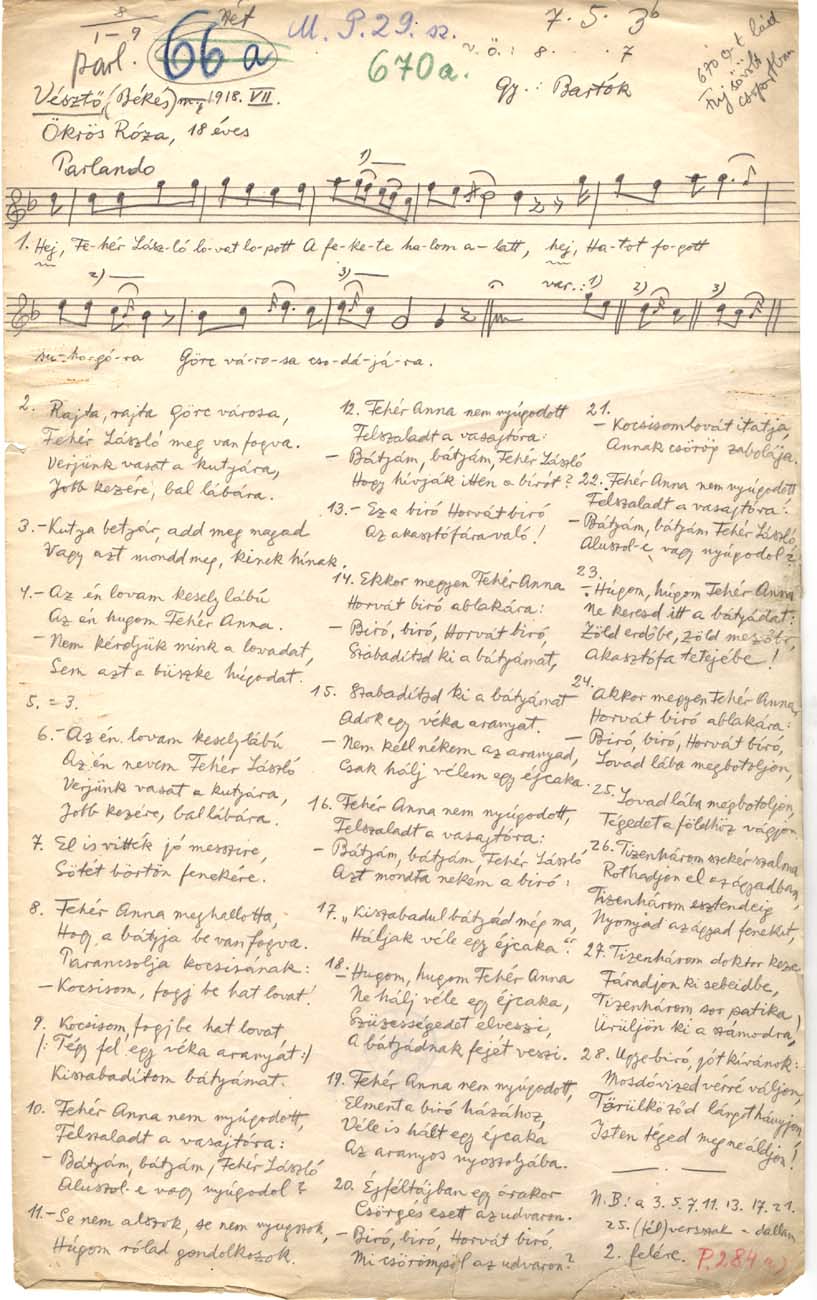 8
1-9
parl.
66a
M. P. 29. sz.
670a.
7. 5. 3b
v. ö.: 8. . . 7
Gy.: Bartók
Vésztő, (Békés) m., 1918. VII.
Ökrös Róza, 18 éves
Parlando
1)
1. Hej, Fe-hér Lász-ló lo-vat lo-pott A fe-ke-te ha-lom a-latt, hej, Ha-tot fo-gott
2) 3) var.: 1) 2) 3)
su-hogó-ra Görc vá-ro-sa cso-dá-já-ra.
2. Rajta, rajta Görc városa,
Fehér László meg van fogva.
Verjünk vasat a kutyára,
Jobb kezére, bal lábára.
3. - Kutya betyár, add meg magad
Vagy azt mondd meg, kinek hinak.
4. - Az én lovam kesely lábú
Az én hugom Fehér Anna.
- Nem kérdjük mink a lovadat,
Sem azt a büszke húgodat.
5. = 3.
6. - Az én lovam kesely lábú
Az én nevem Fehér László
Verjünk vasat a kutyára,
Jobb kezére, bal lábára.
7. El is vitték jó messzire,
Sötét börtön fenekére.
8. Fehér Anna meghallotta,
Hogy a bátyja be van fogva.
Parancsolja kocsisának:
- Kocsisom, fogj be hat lovat!
9. Kocsisom, fogj be hat lovat
/: Tégy fel egy véka aranyat :/
Kiszabadítom bátyámat.
10. Fehér Anna nem nyúgodott,
Felszaladt a vasajtóra:
- Bátyám, bátyám, Fehér László
Aluszol-e vagy nyúgodol?
11. - Se nem alszok, se nem nyugszok,
Húgom rólad gondolkozok.
12. Fehér Anna nem nyúgodott
Felszaladt a vasajtóra:
- Bátyám, bátyám, Fehér László
Hogy hívják itten a bírót?
13. - Ez a biró Horvát biró
Az akasztófára való!
14. Ekkor megyen Fehér Anna
Horvát biró ablakára:
- Biró, biró, Horvát biró,
Szabadítsd ki a bátyámat,
15. Szabadítsd ki a bátyámat
Adok egy véka aranyat.
- Nem kell nékem az aranyad,
Csak hálj vélem egy éjcaka.
16. Fehér Anna nem nyúgodott,
Felszaladt a vasajtóra:
- Bátyám, bátyám, Fehér László
Azt mondta nekem a biró:
17. „Kiszabadul bátyád még ma,
Háljak véle egy éjcaka".
18. - Hugom, hugom Fehér Anna
Ne hálj véle egy éjcaka,
Szüzességedet elveszi,
A bátyádnak fejét veszi.
19. Fehér Anna nem nyúgodott,
Elment a biró házához,
Véle is hált egy éjcaka
Az aranyos nyoszolyába.
20. Éjféltájban egy órakor
Csörgés esett az udvaron.
- Biró, biró, Horvát biró,
Mi csörömpöl az udvaron?
21.
- Kocsisom lovát itatja,
Annak csörög zabolája.
22. Fehér Anna nem nyúgodott
Felszaladt a vasajtóra:
- Bátyám, bátyám Fehér László,
Aluszol-e vagy nyúgodol?
23.
- Húgom, húgom Fehér Anna
Ne keresd itt a bátyádat:
Zöld erdőbe, zöld mezőbe,
Akasztófa tetejébe!
24. Akkor megyen Fehér Anna,
Horvát biró ablakára:
- Biró, biró, Horvát biró,
Lovad lába megbotoljon,
25. Lovad lába megbotoljon,
Tégedet a földhöz vágjon
26. Tizenhárom szekér szalma
Rothadjon el az ágyadban,
Tizenhárom esztendeig
Nyomjad az ágyad feneket,
27. Tizenhárom doktor keze
Fáradjon ki sebeidbe,
Tizenhárom sor patika
Ürüljön ki a számodra,
28. Ugye biró, jót kívánok:
Mosdóvized vérré váljon,
Törülköződ lángot hányjon,
Isten téged meg ne áldjon!
N.B.: a 3. 5. 7. 11. 13. 17. 21.
25. (fél)versszak = dallam
2. felére. P.284a)